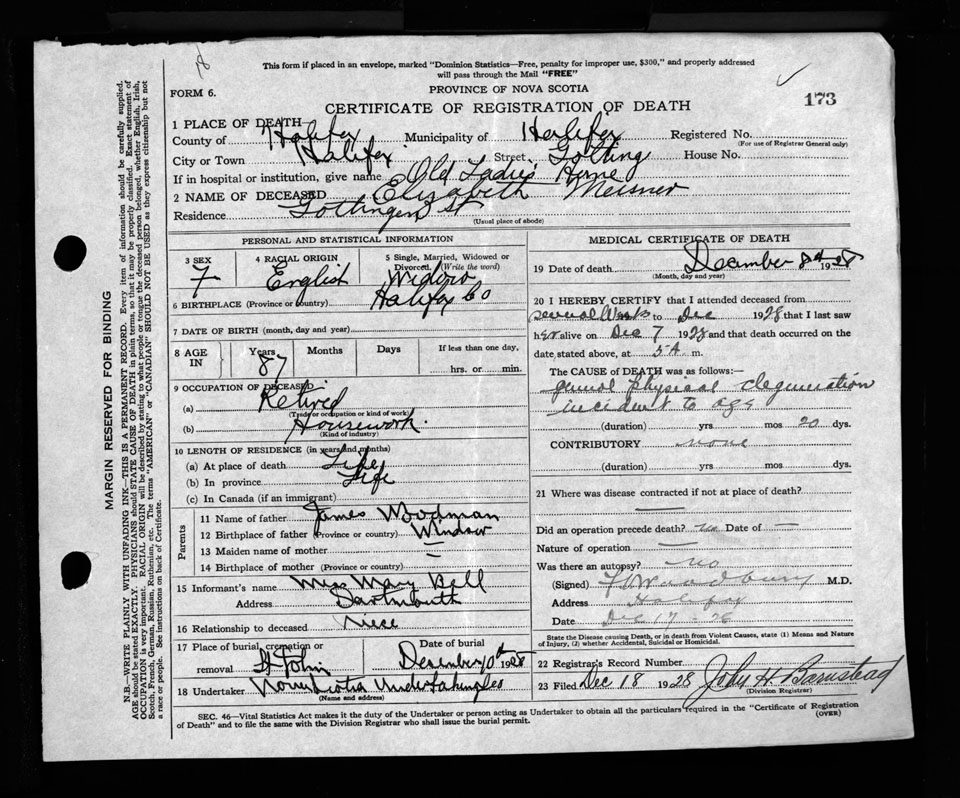 This form if placed in an envelope, marked "Dominion Statistics—Free, penalty for improper use, $300," and properly addressed
will pass through the Mail "FREE"
FORM 6.
PROVINCE OF NOVA SCOTIA
173
CERTIFICATE OF REGISTRATION OF DEATH
1 PLACE OF DEATH
County of Halifax Municipality of Halifax Registered No.
(For use of Registrar General only)
City or Town Halifax Street, Gotting House No.
If in hospital or institution, give name Old Ladies Home
2 NAME OF DECEASED Elizabeth Meisner
Residence Gottingen St
(Usual place of abode)
PERSONAL AND STATISTICAL INFORMATION
3 SEX F
4 RACIAL ORIGIN English
5 Single, Married, Widowed or Divorced. (Write the word) Widow
6 BIRTHPLACE (Province or country) Halifax Co
7 DATE OF BIRTH (month, day and year)
8 AGE IN Years 87 Months Days If less than one day, hrs. or min.
9 OCCUPATION OF DECEASED
(a) Retired
(Trade or occupation or kind of work)
(b) Housework.
(Kind of industry)
10 LENGTH OF RESIDENCE (in years and months)
(a) At place of death Life
(b) In province Life
(c) In Canada (if an immigrant)
Parents
11 Name of father James Woodman
12 Birthplace of father (Province or country) Windsor
13 Maiden name of mother —
14 Birthplace of mother (Province or country)
15 Informant's name Miss Mary Bell
Address Dartmouth
16 Relationship to deceased niece
17 Place of burial, cremation or removal St John Date of burial December 10th 1928
18 Undertaker Nova Scotia Undertaking
(Name and address)
MEDICAL CERTIFICATE OF DEATH
19 Date of death December 8th 1928
(Month, day and year)
20 I HEREBY CERTIFY that I attended deceased from
several Weeks to Dec 1928 that I last saw
her alive on Dec 7 1928 and that death occurred on
date stated above, at 5 A m.
The CAUSE of DEATH was as follows:—
general physical degeneration
incident to age
(duration) yrs mos 20 dys.
CONTRIBUTORY none
(duration) yrs mos. dys.
21 Where was disease contracted if not at place of death?
—
Did an operation precede death? no Date of —
Nature of operation —
Was there an autopsy? no
(Signed) Woodbury M.D.
Address Halifax
Date Dec 17 - 28
State the Disease causing Death, or in death from Violent Causes, state (1) Means and Nature
of Injury, (2) whether Accidental, Suicidal or Homicidal.
22 Registrar's Record Number
23 Filed Dec 18 1928 John H Barnstead
(Division Registrar)
SEC. 46—Vital Statistics Act makes it the duty of the Undertaker or person acting as Undertaker to obtain all the particulars required in the "Certificate of Registration
of Death" and to file the same with the Division Registrar who shall issue the burial permit.
(OVER)
MARGIN RESERVED FOR BINDING
N.B.—WRITE PLAINLY WITH UNFADING INK—THIS IS A PERMANENT RECORD. Every item of information should be carefully supplied.
AGE should be stated EXACTLY. PHYSICIANS should STATE CAUSE OF DEATH in plain terms, so that it may be properly classified. Exact statement of
OCCUPATION is very important. RACIAL ORIGIN will be described by stating to what people or tongue the deceased person belonged, whether English, Irish,
Scotch, French, German, Russian, Ruthenian, etc. The terms "AMERICAN" or "CANADIAN" SHOULD NOT BE USED as they express citizenship but not
a race or people. See instructions on back of Certificate.